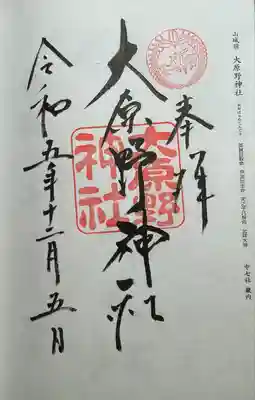 山城国 大原野神社
中七社 畿内
奉拝
大原野神社
大原野
神社
令和五年十二月五日